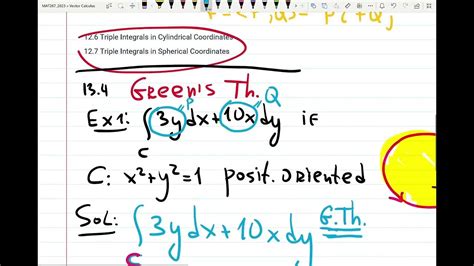 MAT267_2023 » Vector Calculus
12.6 Triple Integrals in Cylindrical Coordinates
12.7 Triple Integrals in Spherical Coordinates
13.4 Green's Th.
P Q
Ex1: ∫ 3y dx + 10x dy if
C
C: x²+y²=1 posit. oriented
Sol: ∫ 3y dx + 10x dy G.Th.